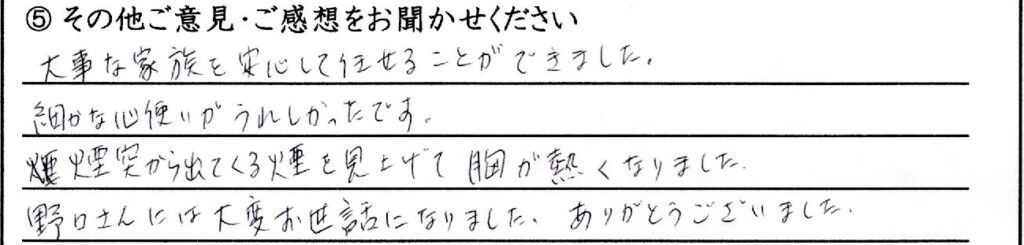 ⑤ その他ご意見・ご感想をお聞かせください
大事な家族を安心して任せることができました。
細かな心使いがうれしかったです。
煙突から出てくる煙を見上げて胸が熱くなりました。
野口さんには大変お世話になりました。ありがとうございました。